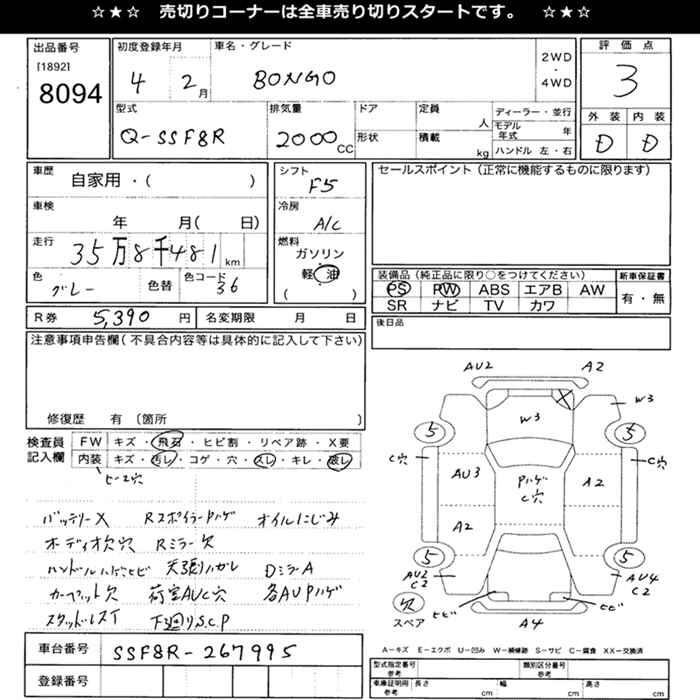 ☆★☆ 売切りコーナーは全車売り切りスタートです。 ☆★☆
出品番号
[1892]
8094
初度登録年月
4 2月
車名・グレード
BONGO
2WD
・
4WD
評価点
3
型式
Q-SSF8R
排気量
2000 CC
ドア
形状
定員
人
積載
kg
ディーラー・並行
モデル年式 年
ハンドル 左・右
外装 内装
D D
車歴
自家用・( )
車検
年 月( 日)
走行
35万8千481 km
色
グレー
色替
色コード
36
シフト
F5
冷房
A/C
燃料
ガソリン
軽油
( )
セールスポイント(正常に機能するものに限ります)
装備品(純正品に限り○をつけてください)
PS PW ABS エアB AW
SR ナビ TV カワ
新車保証書
有・無
R券 5,390 円
名変期限 月 日
後日品
注意事項申告欄(不具合内容等は具体的に記入して下さい)
修復歴 有 〔箇所
検査員記入欄
FW キズ・飛石・ヒビ割・リペア跡・X要
内装 キズ・汚レ・コゲ・穴・スレ・キレ・破レ
ビース穴
バッテリーX RスポイラーPハゲ オイルにじみ
オーディオ欠穴 Rミラー欠
ハンドルハゲヒビ 天張ハガレ DミラーA
カーペット欠 荷室AUC穴 各AUPハゲ
スタッドレスT 下廻りS.C.P
車台番号 SSF8R-267995
登録番号
AU2 A2
W3 W3
5 5
C穴 C穴
AU3 Pハゲ A2
C穴
A2
5 5
AU2 AU4
C2 C2
欠
スペア
ヒビ ヒビ
A4
A-キズ E-エクボ U-凹み W-補修跡 S-サビ C-腐食 XX-交換済
型式指定番号
参考
類別区分番号
参考
車庫証明用
参考
長さ cm
幅 cm
高さ cm